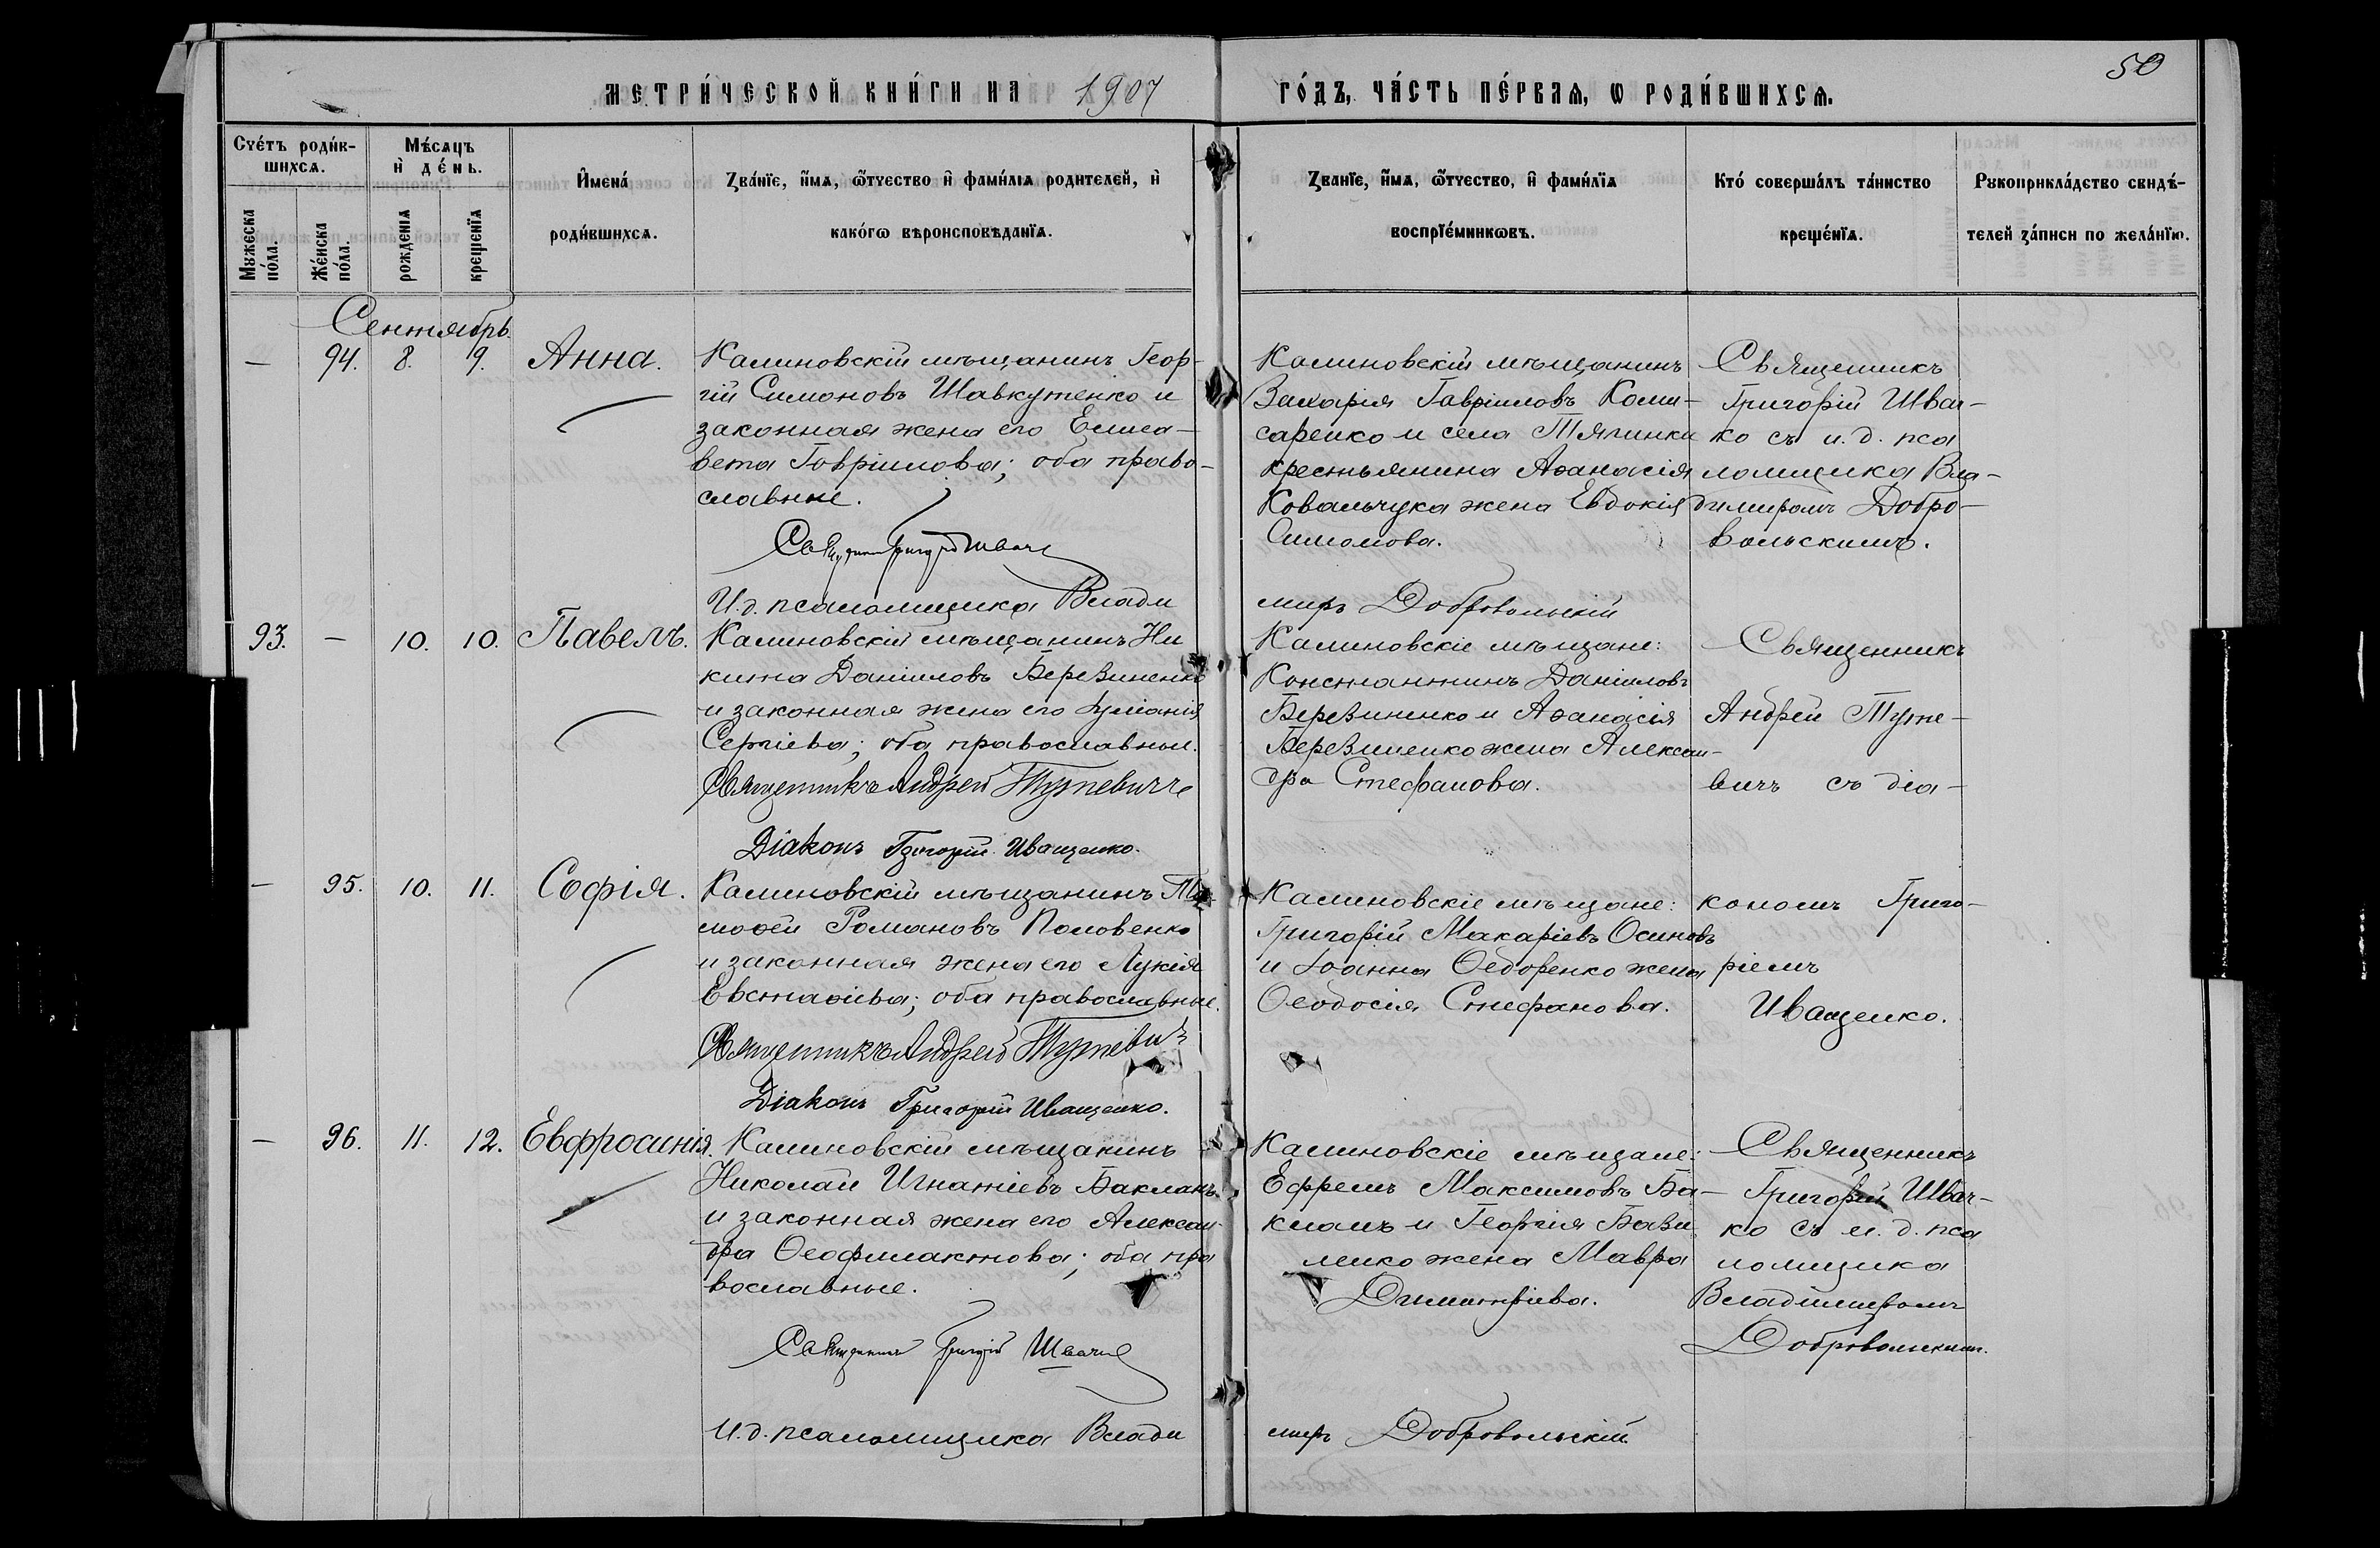 50
МЕТРИ́ЧЕСКОЙ КНИ́ГИ НА 1907 ГО́ДЪ, ЧА́СТЬ ПЕ́РВАЯ, Ѡ РОДИ́ВШИХСѦ.
Счетъ родив-
шихсѧ.
Мужеска пола.
Женска пола.
Мѣсѧцъ и день.
рожденія
крещенія
Имена
родившихсѧ.
Званіе, имѧ, ѿчество и фамиліа родителей, и
какогѡ вѣроисповѣданіѧ.
Званіе, имѧ, ѿчество, и фамиліѧ
воспріемникѡвъ.
Кто совершалъ таинство
крещеніѧ.
Рукоприкладство свидѣ-
телей записи по желанію.
Сентябрь.
— 94. 8. 9. Анна.
Калиновскій мѣщанинъ Геор-
гій Симоновъ Шавкутенко и
законная жена его Елиса-
вета Гавріилова; оба право-
славные.
Священникъ Григорій Швачко
И. д. псаломщика Влади
Калиновскій мѣщанинъ
Захарія Гавріиловъ Коми-
саренко и села Тягинки
крестьянина Аѳанасія
Ковальчука жена Евдокія
Симонова.
миръ Добровольскій
Священникъ
Григорій Швач-
ко съ и. д. пса
ломщика Вла-
димиромъ Добро-
вольскимъ.
93. — 10. 10. Павелъ.
Калиновскій мѣщанинъ Ни
кита Даніиловъ Березиненко
и законная жена его Іуліанія
Сергіева; оба православные.
Священникъ Андрей Тутевичъ
Діаконъ Григорій Иващенко.
Калиновскіе мѣщане:
Константинъ Даніиловъ
Березиненко и Аѳанасія
Березиненко жена Алексан-
дра Стефанова.
Священникъ
Андрей Туте-
вичъ съ діа-
— 95. 10. 11. Софія.
Калиновскій мѣщанинъ Ти-
моѳей Романовъ Половенко
и законная жена его Лукія
Евстаѳіева; оба православные.
Священникъ Андрей Тутевичъ
Діаконъ Григорій Иващенко.
Калиновскіе мѣщане:
Григорій Макаріевъ Осиновъ
и Іоанна Ѳедоренко жена
Ѳеодосія Стефанова.
кономъ Григо-
ріемъ
Иващенко.
— 96. 11. 12. Евфросинія.
Калиновскій мѣщанинъ
Николай Игнатіевъ Бакланъ
и законная жена его Алексан-
дра Ѳеофилактова; оба пра
вославные.
Священникъ Григорій Швачко
И. д. псаломщика Влади
Калиновскіе мѣщане:
Ефремъ Максимовъ Ба-
кланъ и Георгія Бази
ленко жена Мавра
Димитріева.
миръ Добровольскій
Священникъ
Григорій Швач-
ко съ и. д. пса
ломщика
Владимиромъ
Добровольскимъ.